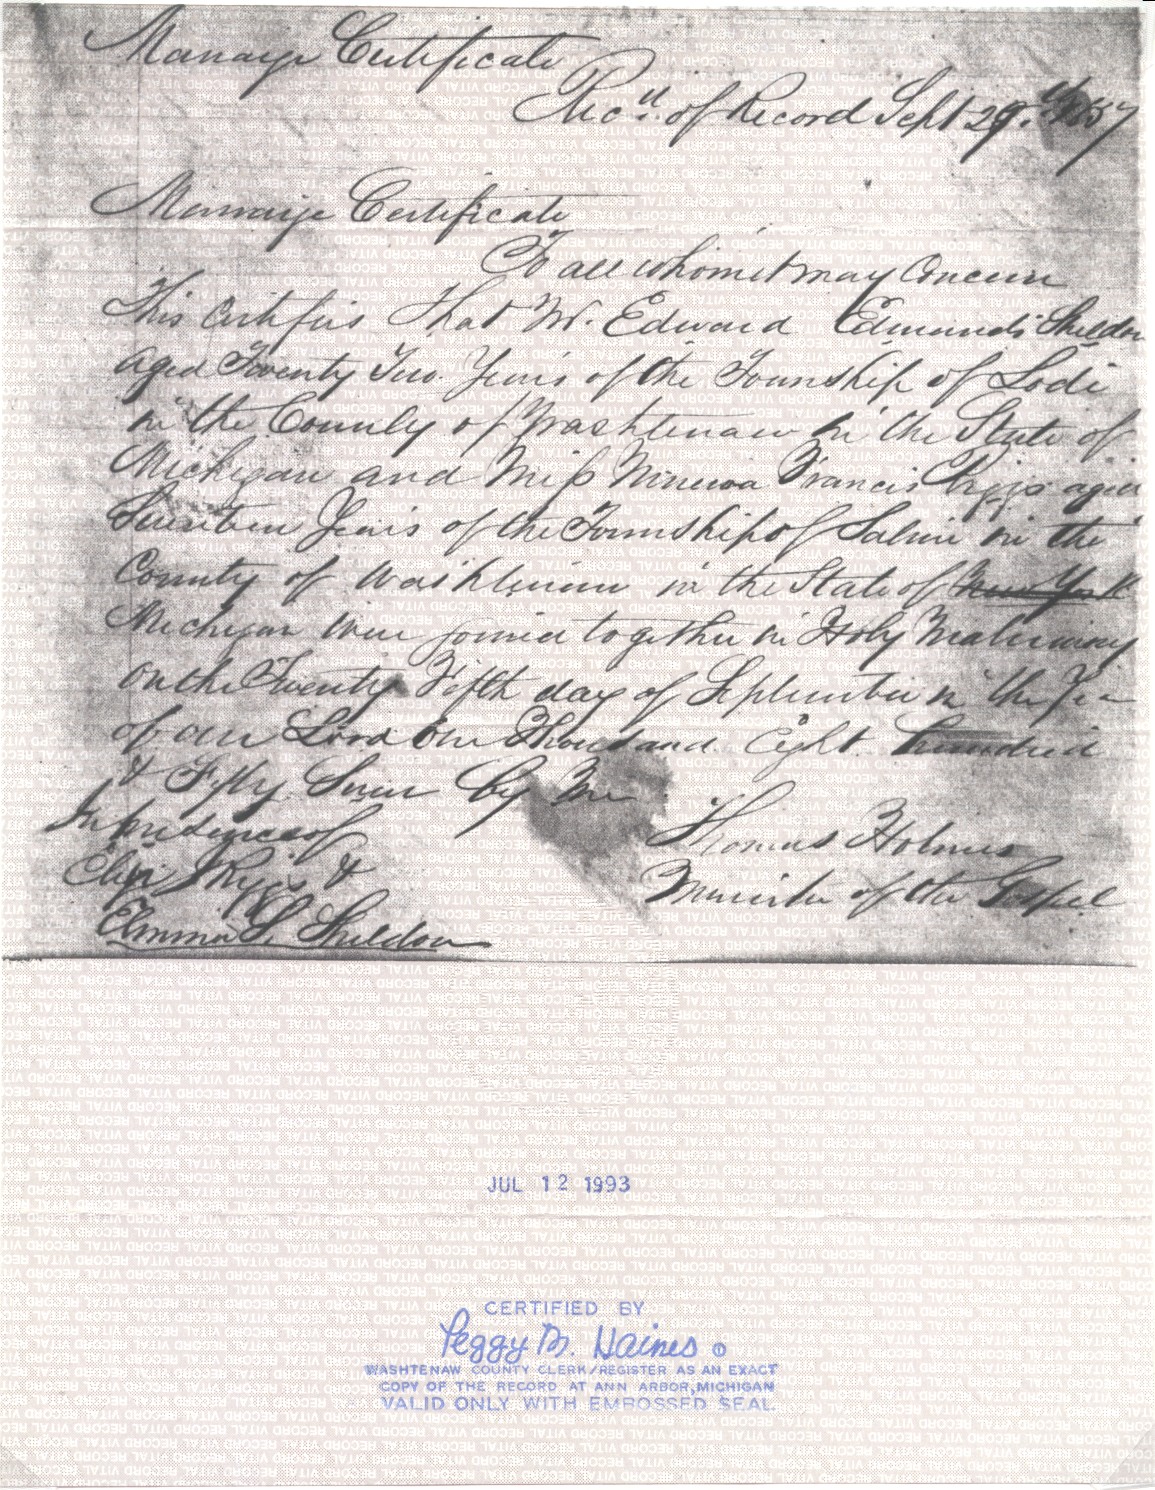 Marraige Certificate
Rec.d of Record Sept 29.th 1857
Marraige Certificate
To all whom it may Concern
This Certifies That Mr. Edward Edmunds Sheldon
aged Twenty Two Years of the Township of Lodi
in the County of Washtenaw in the State of
Michigan and Miss Minerva Francis aged
Seventeen Years of the Township of Saline in the
County of Washtenaw in the State of New York
Michigan were joined together in Holy Matrimony
on the Twenty Fifth day of September in the Year
of our Lord One Thousand Eight hundred
& Fifty Seven by Me
In presence of
Thomas Holmes
&
Minister of the Gospel
Emma S. Sheldon
JUL 12 1993
CERTIFIED BY
Peggy M. Haines
WASHTENAW COUNTY CLERK/REGISTER AS AN EXACT
COPY OF THE RECORD AT ANN ARBOR, MICHIGAN
VALID ONLY WITH EMBOSSED SEAL.